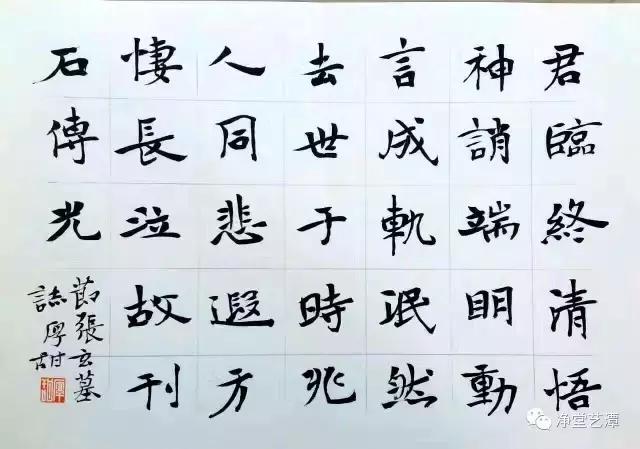 君臨終清悟
神誚端明動
言成軌泯然
去世于時兆
人同悲遐方
悽長泣故刊
石傳光
節張玄墓
誌厚甜
净堂艺潭